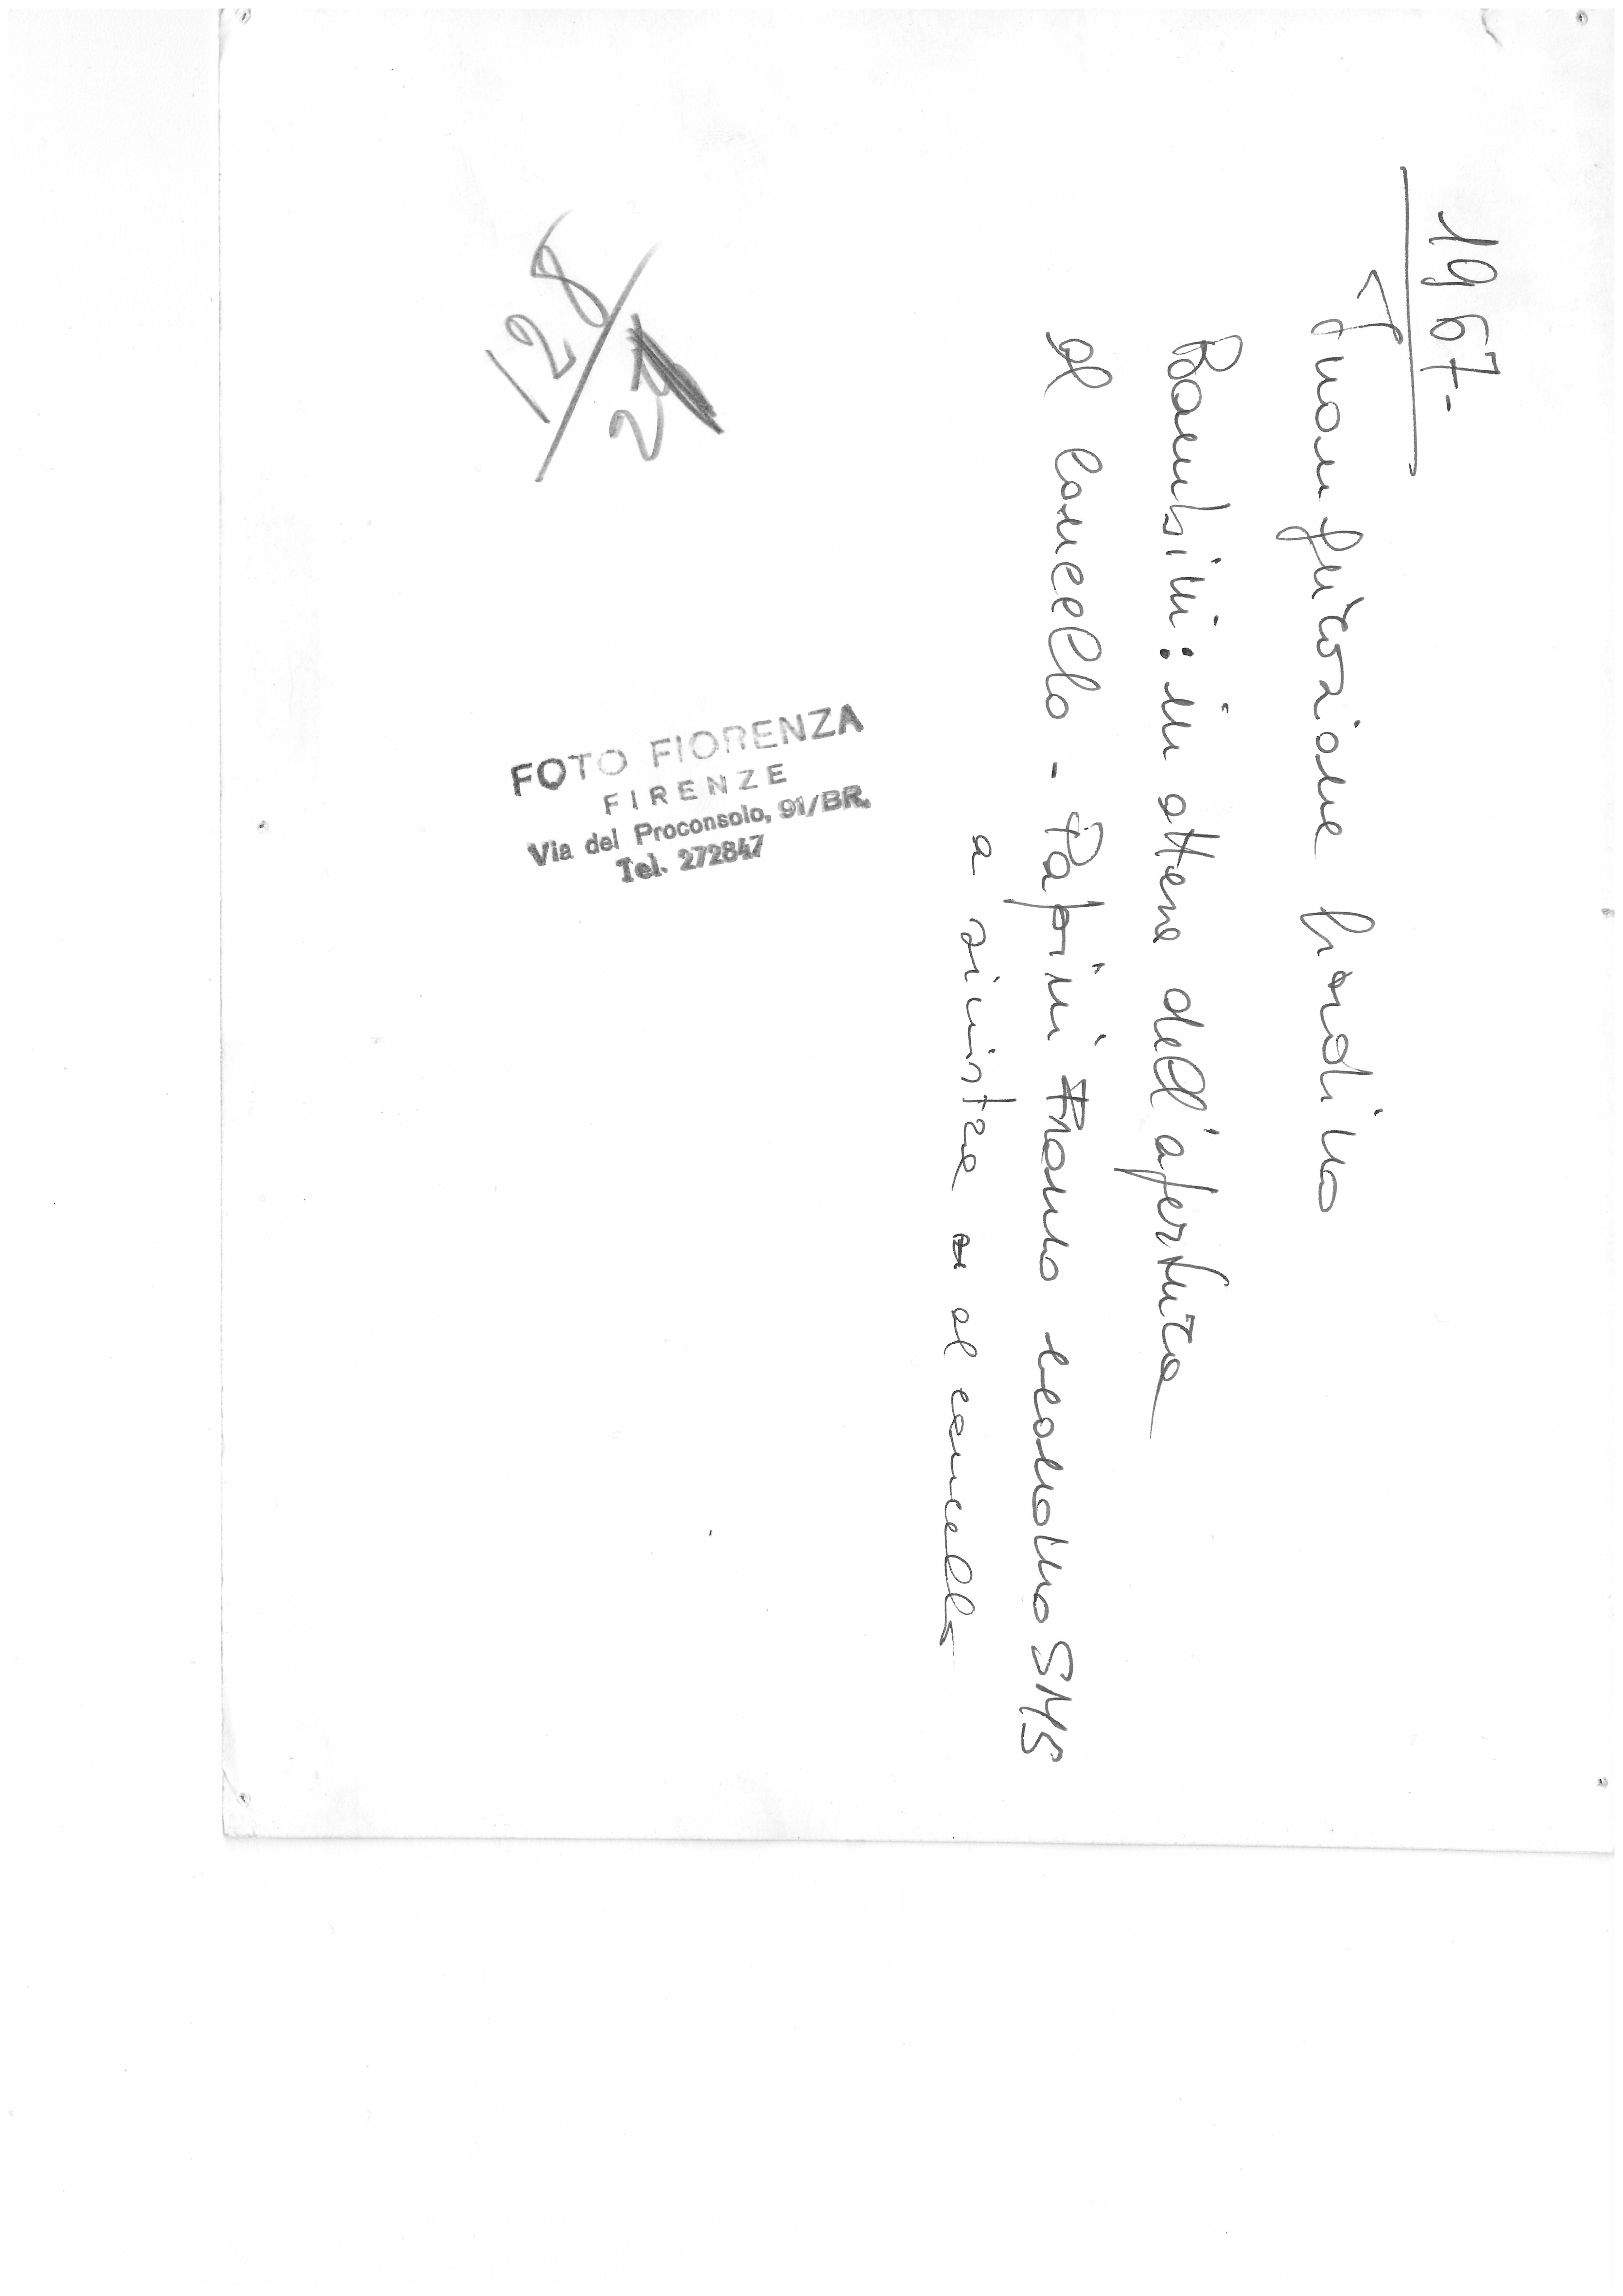 1967-
Inaugurazione giardino
Bambini: in attesa dell'apertura
al Cancello - Papini Franco SMS
a sinistra al cancello
128/
FOTO FIORENZA
FIRENZE
Via del Proconsolo, 91/BR.
Tel. 272847